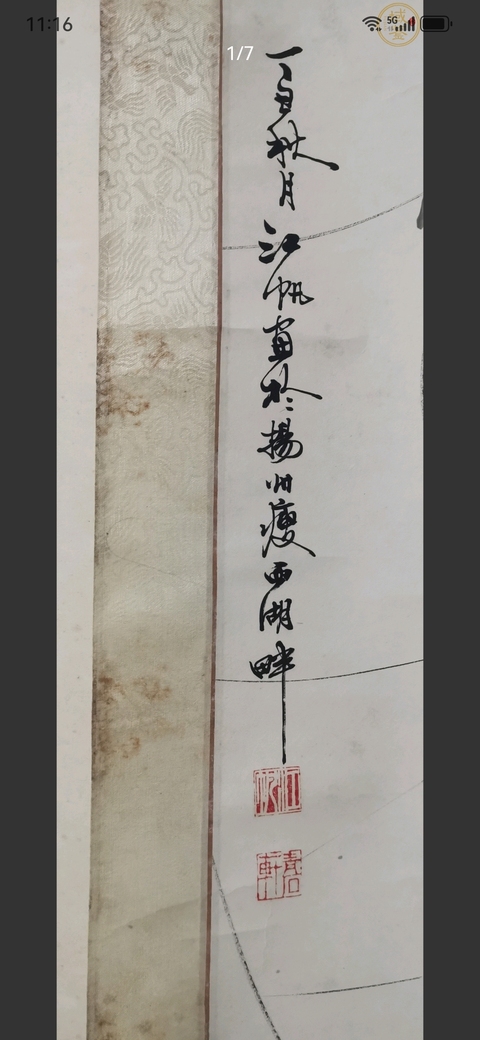 11:16
5G
1/7
丁酉秋月江帆畫於揚州瘦西湖畔
江帆